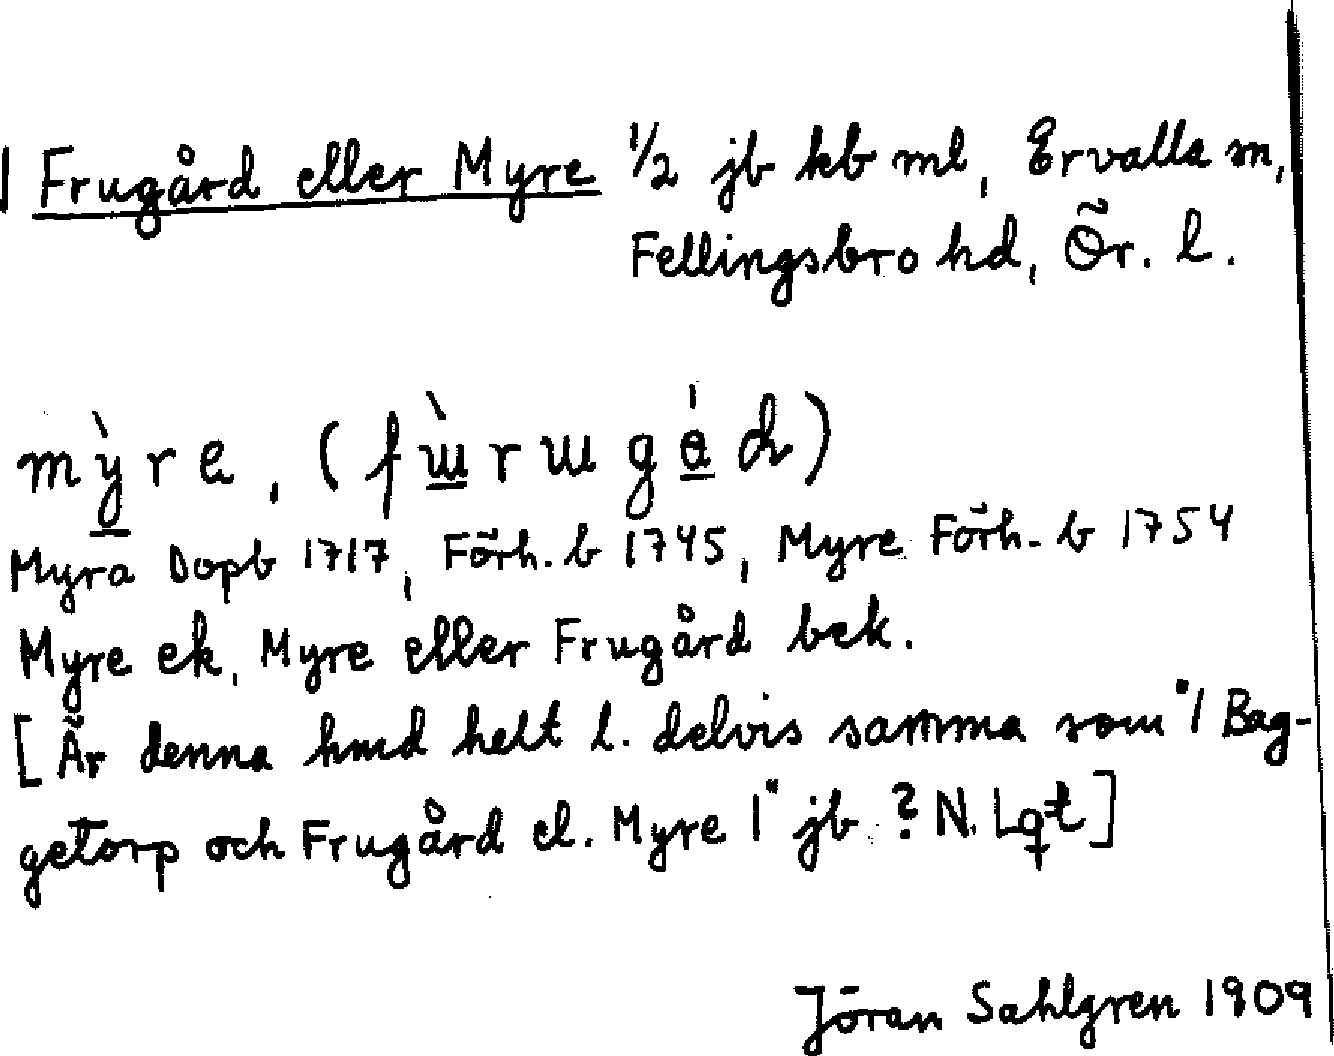 Frugård eller Myre 1/2 jb kb ml, Ervalla sn,
Fellingsbro hd, Ör. l.
mỳre, (fɯ̀rɯgád)
Myra Dopb 1717, Förh.b 1745, Myre Förh-b 1754
Myre ek, Myre eller Frugård bek.
[Är denna hmd helt l. delvis samma som "1 Bag-
getorp och Frugård el. Myre 1" jb ? N. Lqt]
Jöran Sahlgren 1909